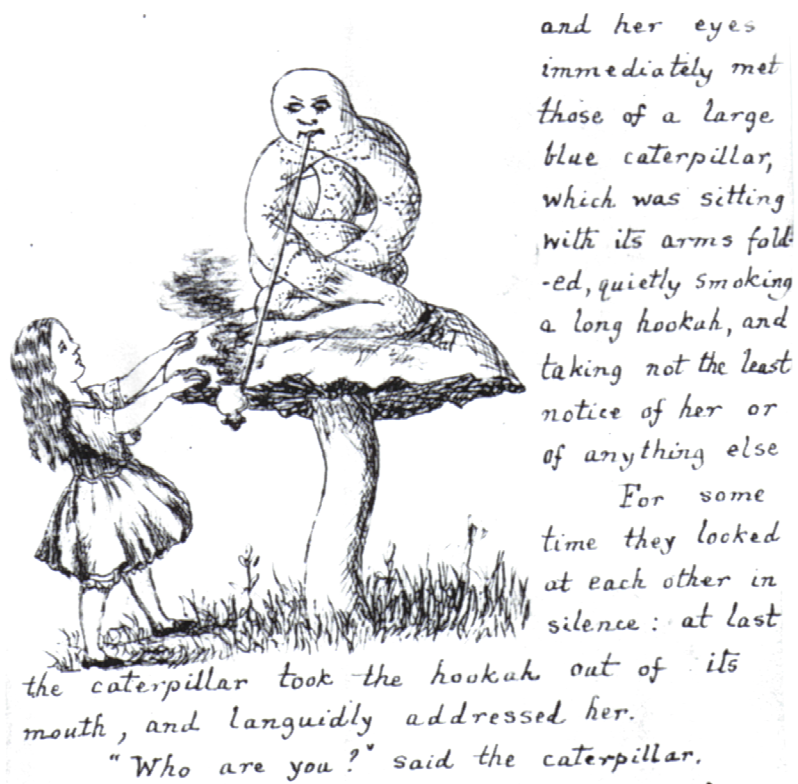 and her eyes
immediately met
those of a large
blue caterpillar,
which was sitting
with its arms fold-
-ed, quietly smoking
a long hookah, and
taking not the least
notice of her or
of anything else
For some
time they looked
at each other in
silence: at last
the caterpillar took the hookah out of its
mouth, and languidly addressed her.
"Who are you?" said the caterpillar.